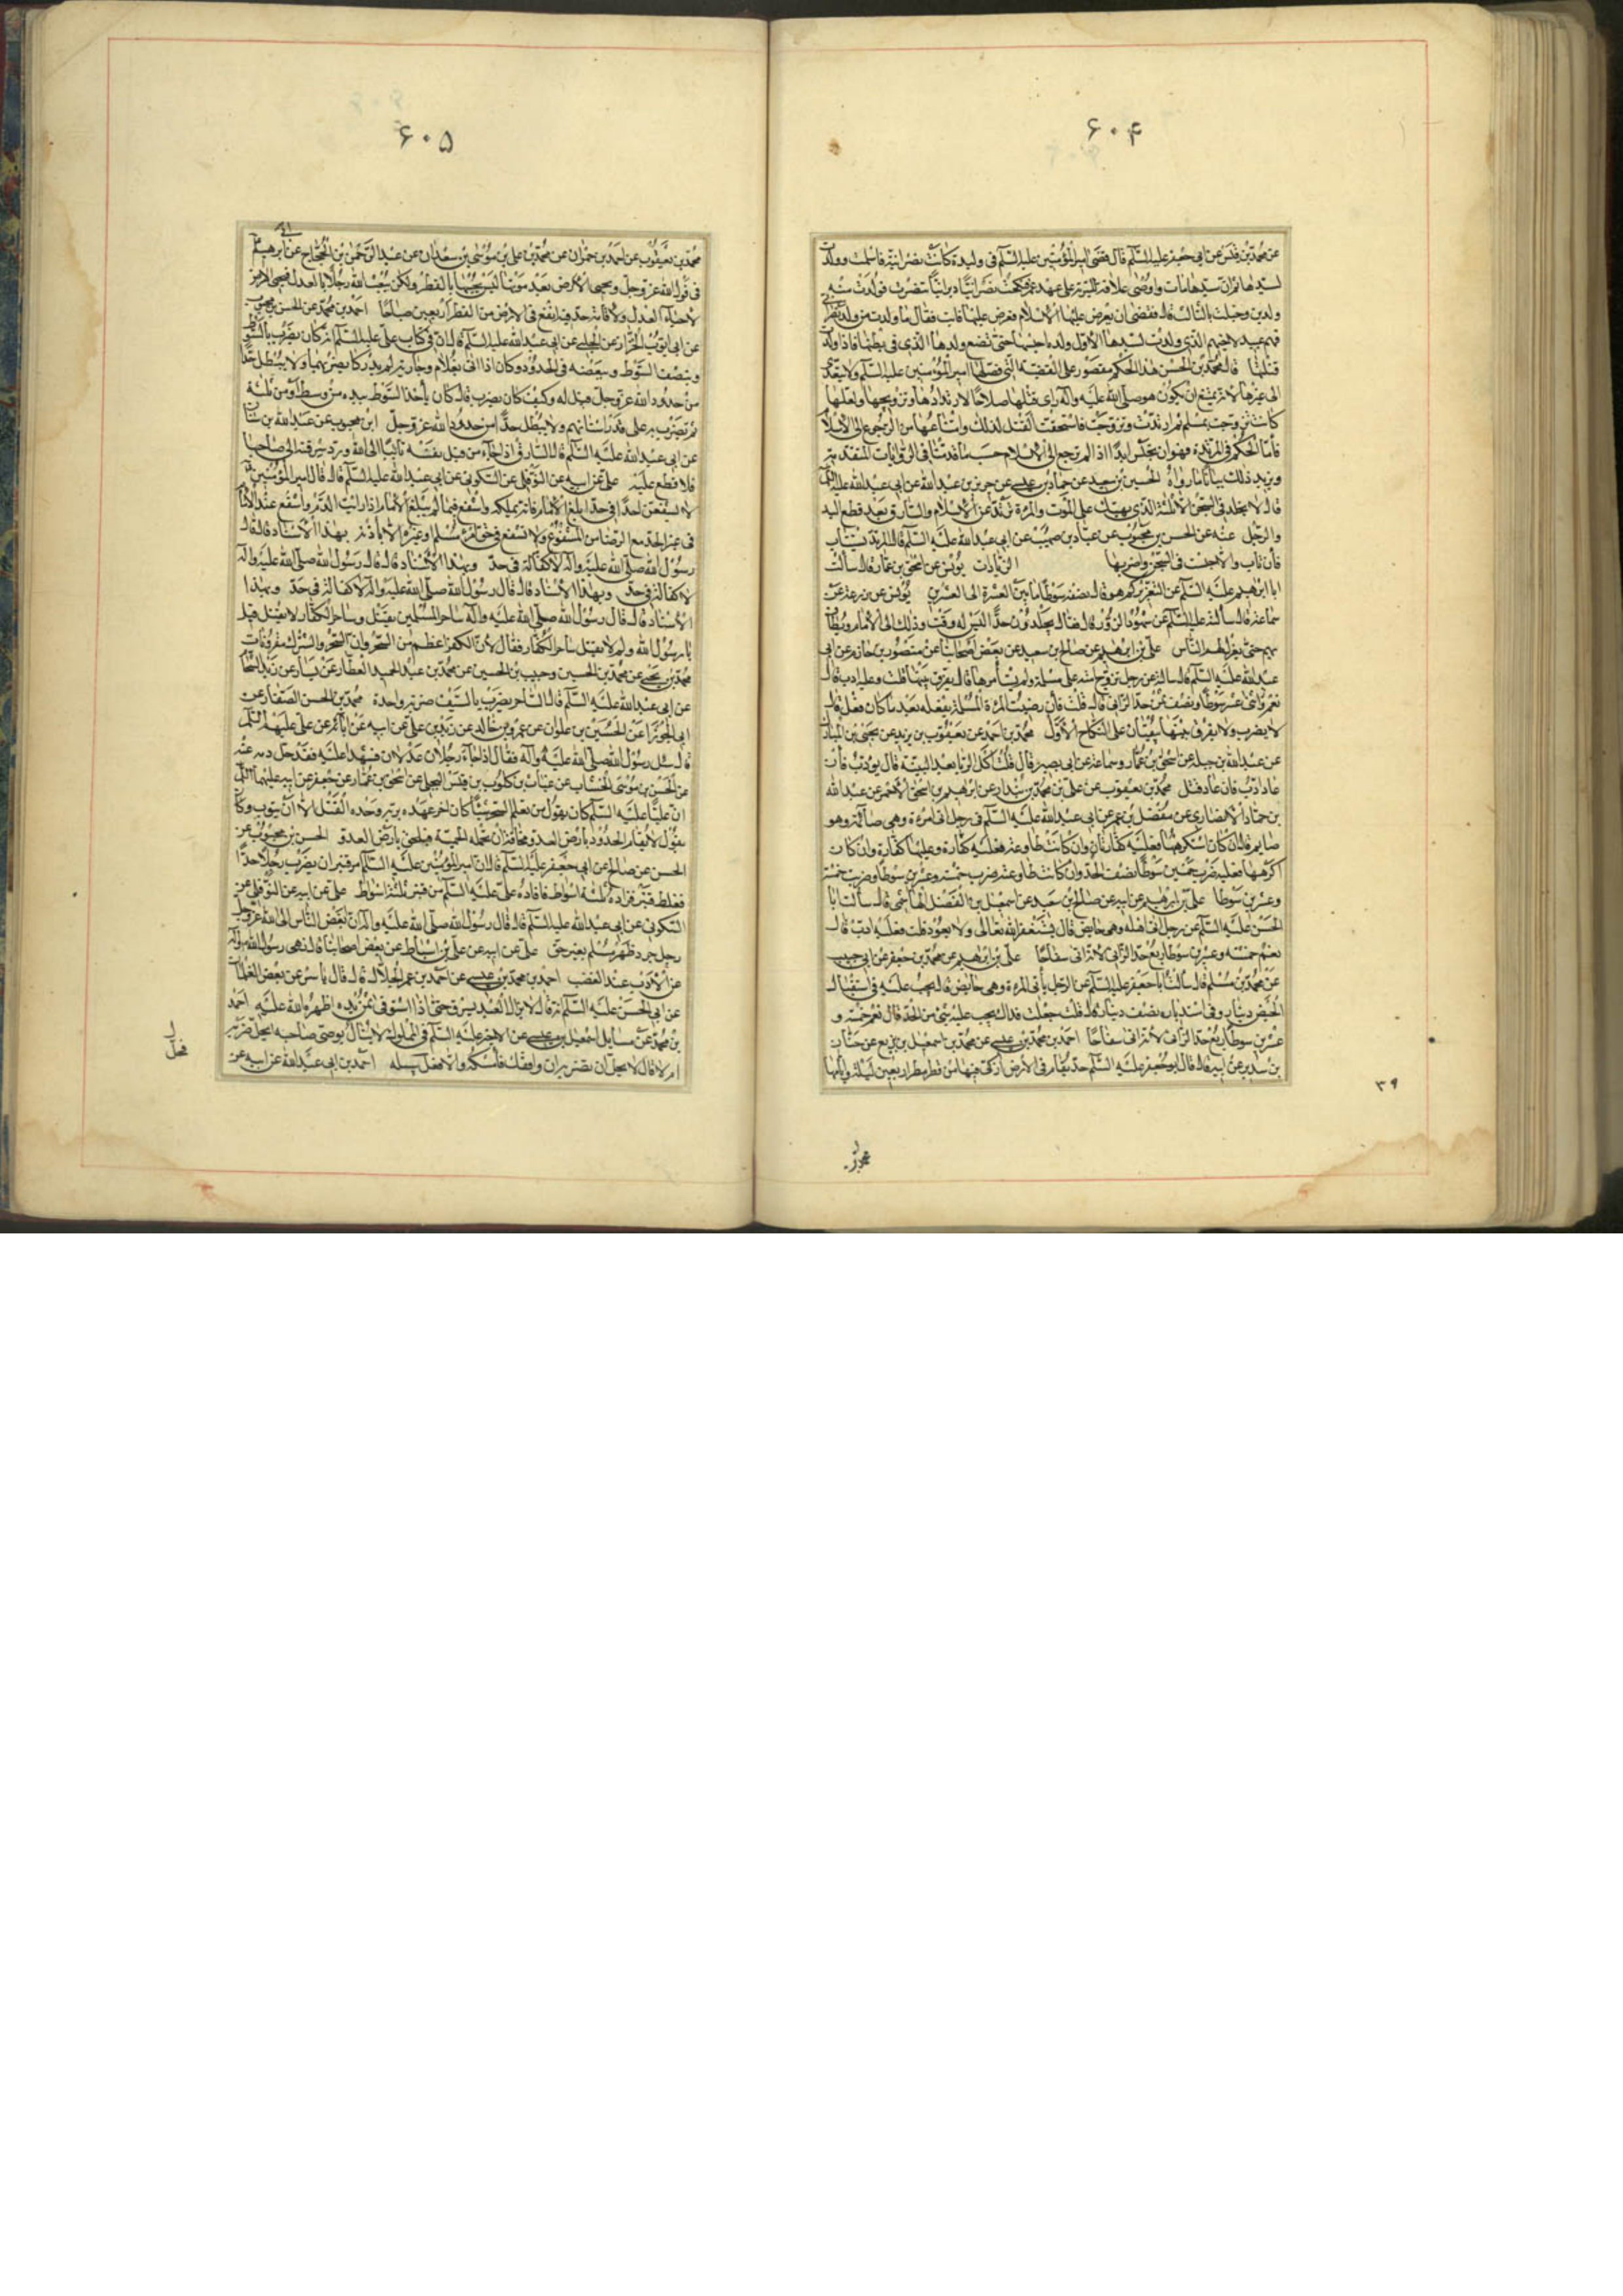 ۶۰۴
عن محمد بن قيس عن ابي جعفر عليه السلم قال قضى امير المؤمنين عليه السلم في وليدة كانت نصرانية فاسلمت وولدت
لسيدها ثم ان سيدها مات واوصى بها عتاقة السرية على عهد عمر فنكحت نصرانيا ديرانيا فتنصرت فولدت منه
ولدين وحبلت بالثالث قال فقضى ان يعرض عليها الاسلام فعرض عليها فابت فقال ما ولدت من ولد نصراني
فهم عبيد لاخيهم الذي ولدت لسيدها الاول وانا احبسها حتى تضع ولدها الذي في بطنها فاذا ولدت
قتلتها قال محمد بن الحسن هذا الحكم مقصور على القضية التي فصلها امير المؤمنين عليه السلم ولا يتعدى
الى غيرها لانه لا يمتنع ان يكون هو صلى الله عليه وآله راى قتلها صلاحا لارتدادها وتزويجها ولعلها
كانت تزوجت بمسلم ثم ارتدت وتزوجت فاستحقت القتل لذلك ولامتناعها من الرجوع الى الاسلام
فأما الحكم في المرتدة فهو ان تحبس ابدا اذا لم ترجع الى الاسلام حسب ما قدمناه في الروايات المتقدمة
ويزيد ذلك بيانا ما رواه الحسين بن سعيد عن حماد بن عيسى عن حريز بن عبد الله عن ابي عبد الله عليه السلم
قال لا يخلد في السجن الا ثلثة الذي يمسك على الموت والمرءة ترتد عن الاسلام والسارق بعد قطع اليد
والرجل عنه عن الحسن بن محبوب عن عباد بن صهيب عن ابي عبد الله عليه السلم قال المرتد يستتاب
فأن تاب والا قتل والمرءة تستتاب فان تابت والا حبست في السجن واضر بها الزيادات يونس عن اسحق بن عمار قال سألت
ابا ابرهيم عليه السلم عن التعزير كم هو قال بضعة سوطا ما بين العشرة الى العشرين يونس عن زرعة عن
سماعة قال سألته عليه السلم عن شهود الزور قال فقال يجلدون حدا ليس له وقت وذلك الى الامام ويطاف
بهم حتى يعرفهم الناس علي بن ابرهيم عن صالح بن سعيد عن بعض اصحابنا عن منصور بن حازم عن ابي
عبد الله عليه السلم قال سألته عن رجل تزوج امة على مسلمة ولم يستأمرها قال يفرق بينهما قلت وعليه ادب قال
نعم واثنى عشر سوطا ونصف ثمن حد الزاني قال قلت فأن رضيت المرءة المسلمة بفعله بعد ما كان فعل قال
لا يضرب ولا يفرق بينهما يبقيان على النكاح الاول محمد بن احمد عن يعقوب بن يزيد عن يحيى بن المبارك
عن عبد الله بن جبلة عن اسحق بن عمار وسماعة عن ابي بصير قال قلت آكل الربا بعد البينة قال يؤدب فأن
عاد ادب فأن عاد قتل محمد بن يعقوب عن علي بن محمد بن بندار عن ابرهيم بن اسحق الاحمر عن عبد الله
بن حماد الانصاري عن مفضل بن عمر عن ابي عبد الله عليه السلم في رجل اتى امرءة وهي صائمة وهو
صايم قال ان كان استكرهها فعليه كفارتان وان كانت طاوعته فعليه كفارة وعليها كفارة وان كان
اكرهها فعليه ضرب خمسين سوطا نصف الحد وان كانت طاوعته ضرب خمسة وعشرين سوطا وضربت خمسة
وعشرين سوطا علي بن ابرهيم عن ابيه عن صالح بن سعيد عن اسمعيل بن الفضل الهاشمي قال سألت ابا
الحسن عليه السلم عن رجل اتى اهله وهي حايض قال يستغفر الله تعالى ولا يعود قلت فعليه ادب قال
نعم خمسة وعشرين سوطا ربع حد الزاني لانه اتى سفاحا علي بن ابرهيم عن محمد بن جعفر عن ابي حبيب
عن محمد بن مسلم قال سألت ابا جعفر عليه السلم عن الرجل يأتي المرءة وهي حايض قال يجب عليه في استقبال
الحيض دينار وفي استدباره نصف دينار قال قلت جعلت فداك يجب عليه شئ من الحد قال نعم خمسة و
عشرين سوطا ربع حد الزاني لانه اتى سفاحا احمد بن محمد بن عيسى عن محمد بن اسمعيل بن بزيع عن حنان
بن سدير عن ابيه قال قال ابو جعفر عليه السلم حد يقام في الارض ازكى فيها من قطر مطر اربعين ليلة وايامها
۳۹
۶۰۵
محمد بن يعقوب عن احمد بن مهران عن محمد بن علي بن موسى بن سعدان عن عبد الرحمن بن الحجاج عن ابي ابرهيم
في قول الله عز وجل ويحيى الارض بعد موتها ليس يحييها بالقطر ولكن يبعث الله رجالا بالعدل فيحيى الارض
لاحياء العدل ولاقامة حد فيه انفع في الارض من القطر اربعين صباحا احمد بن محمد عن الحسن بن محبوب
عن ابي ايوب الخزاز عن الحلبي عن ابي عبد الله عليه السلم قال ان في كتاب علي عليه السلم انه كان يضرب بالسوط
وبنصف السوط وببعضه في الحدود وكان اذا اتى بغلام وجارية لم يدركا يضربهما ولا يبطل حدا
من حدود الله عز وجل فقيل له وكيف كان يضرب قال كان يأخذ السوط بيده من وسطه او من ثلثه
ثم يضرب به على قدر اسنانهم ولا يبطل حدا من حدود الله عز وجل ابن محبوب عن عبد الله بن سنان
عن ابي عبد الله عليه السلم قال السارق اذا جاء من قبل نفسه تائبا الى الله ورد سرقته الى صاحبها
فلا قطع عليه علي عن ابيه عن النوفلي عن السكوني عن ابي عبد الله عليه السلم قال قال امير المؤمنين
لا يشفعن احدا في حد اذا بلغ الامام فانه يملكه واشفع فيما لم يبلغ الامام اذا رايت الندم واشفع عند الامام
في غير الحد مع الرضا من المشفوع ولا تشفع في حق امرئ مسلم او غيره الا باذنه بهذا الاسناد قال قال
رسول الله صلى الله عليه وآله لا كفالة في حد وبهذا الاسناد قال قال رسول الله صلى الله عليه وآله
لا كفالة في حد وبهذا الاسناد قال قال رسول الله صلى الله عليه وآله لا كفالة في حد وبهذا
الاسناد قال قال رسول الله صلى الله عليه وآله ساحر المسلمين يقتل وساحر الكفار لا يقتل قيل
يا رسول الله ولم لا يقتل ساحر الكفار فقال لأن الكفر اعظم من السحر وان السحر والشرك مقرونان
محمد بن يحيى عن محمد بن الحسين وحبيب بن الحسين عن محمد بن عبد الحميد العطار عن بشار عن زيد الشحام
عن ابي عبد الله عليه السلم قال الساحر يضرب بالسيف ضربة واحدة محمد بن الحسن الصفار عن
ابي الجوزاء عن الحسين بن علوان عن عمرو بن خالد عن زيد بن علي عن ابيه عن ابائه عن علي عليهم السلم
قال سئل رسول الله صلى الله عليه وآله فقال اذا جاء رجلان عدلان فشهدا عليه فقد حل دمه عنه
عن الحسن بن موسى الخشاب عن غياث بن كلوب بن قيس البجلي عن اسحق بن عمار عن جعفر عن ابيه عليهما السلم
ان عليا عليه السلم كان يقول من تعلم من السحر شيئا كان اخر عهده بربه وحده القتل الا ان يتوب وكان
يقول لا تقام الحدود بأرض العدو مخافة ان تحمله الحمية فيلحق بأرض العدو الحسن بن محبوب عن
الحسن بن صالح عن ابي جعفر عليه السلم قال ان امير المؤمنين عليه السلم امر قنبر ان يضرب رجلا حدا
فغلط قنبر فزاده ثلثة اسواط فاقاده علي عليه السلم من قنبر ثلثة اسواط علي عن ابيه عن النوفلي عن
السكوني عن ابي عبد الله عليه السلم قال قال رسول الله صلى الله عليه وآله ان ابغض الناس الى الله عز وجل
رجل جرد ظهر مسلم بغير حق علي عن ابيه عن علي بن اسباط عن بعض اصحابنا قال نهى رسول الله ص وآله
عن الادب عند الغضب احمد بن محمد بن عيسى عن احمد بن عمر الحلال قال قال ياسر عن بعض الغلمان
عن ابي الحسن عليه السلم انه قال لا يزال العبد يسرق حتى اذا استوفى ثمن يده اظهره الله عليه احمد
بن محمد عن مسايل اسمعيل بن عيسى عن الاخير عليه السلم في المملوك لا يزال يعصي صاحبه ايحل ضربه
ام لا فقال لا يحل ان تضربه ان وافقك فأمسكه والا فخل سبيله احمد بن ابي عبد الله عن ابيه عن